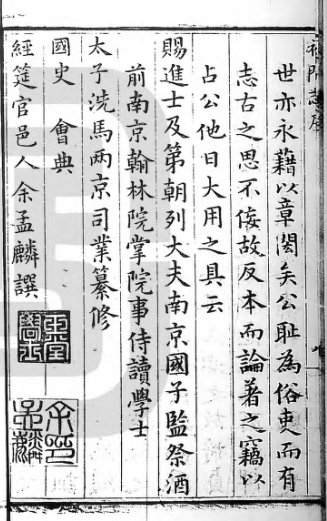 世亦永藉以章閎矣公耻為俗吏而有
志古之思不佞故反本而論著之竊以
占公他日大用之具云
賜進士及第朝列大夫南京國子監祭酒
前南京翰林院掌院事侍讀學士
太子洗馬兩京司業纂修
國史會典
經筵官邑人余孟麟譔